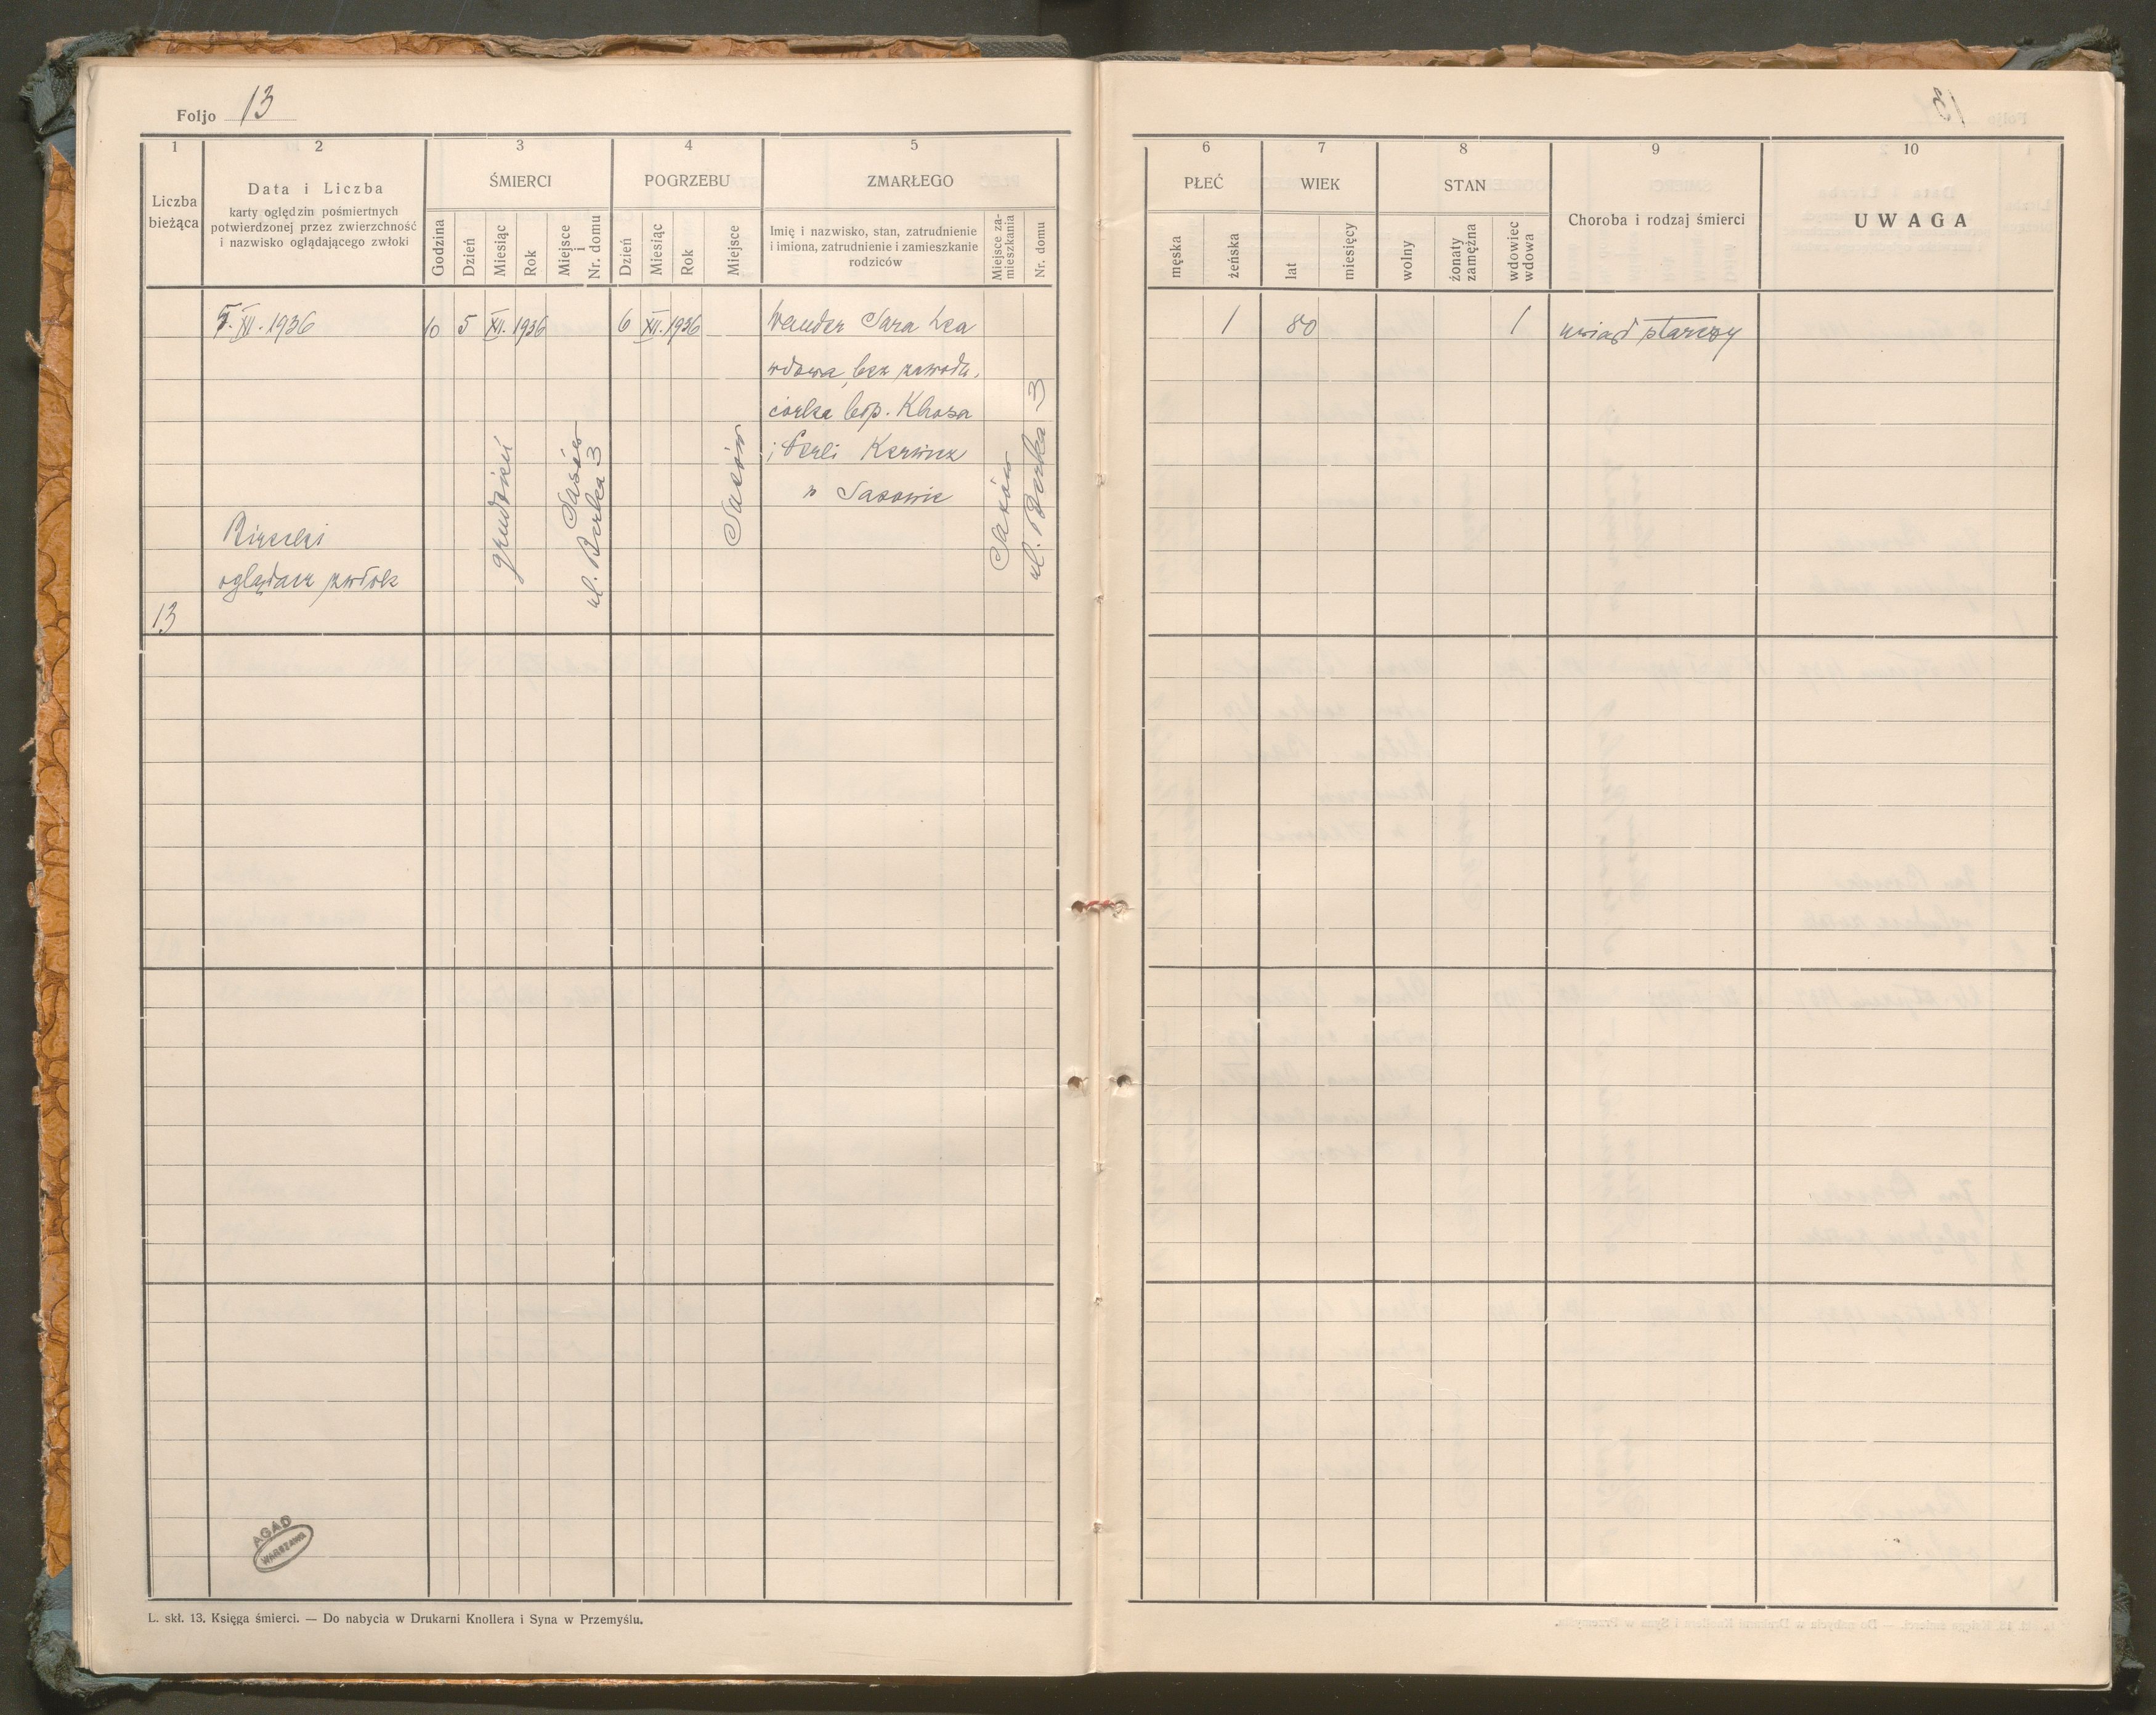 Foljo 13
1
2
3
4
5
Liczba bieżąca
Data i Liczba
karty oględzin pośmiertnych
potwierdzonej przez zwierzchność
i nazwisko oglądającego zwłoki
ŚMIERCI
Godzina
Dzień
Miesiąc
Rok
Miejsce i Nr. domu
POGRZEBU
Dzień
Miesiąc
Rok
Miejsce
ZMARŁEGO
Imię i nazwisko, stan, zatrudnienie
i imiona, zatrudnienie i zamieszkanie
rodziców
Miejsce za-
mieszkania
Nr. domu
5. XII. 1936
10 5 XII. 1936
6 XII. 1936
Wander Sara Lea
wdowa, bez zawodu,
córka
i Perli
w Sasowie
grudzień
Sasów
ul. Berka 3
Sasów
Sasów
ul. Berka 3
oglądacz zwłok
13
AGAD
WARSZAWA
L. skł. 13. Księga śmierci. — Do nabycia w Drukarni Knollera i Syna w Przemyślu.
6
7
8
9
10
PŁEĆ
męska
żeńska
WIEK
lat
miesięcy
STAN
wolny
żonaty
zamężna
wdowiec
wdowa
Choroba i rodzaj śmierci
UWAGA
1
80
1
uwiąd starczy